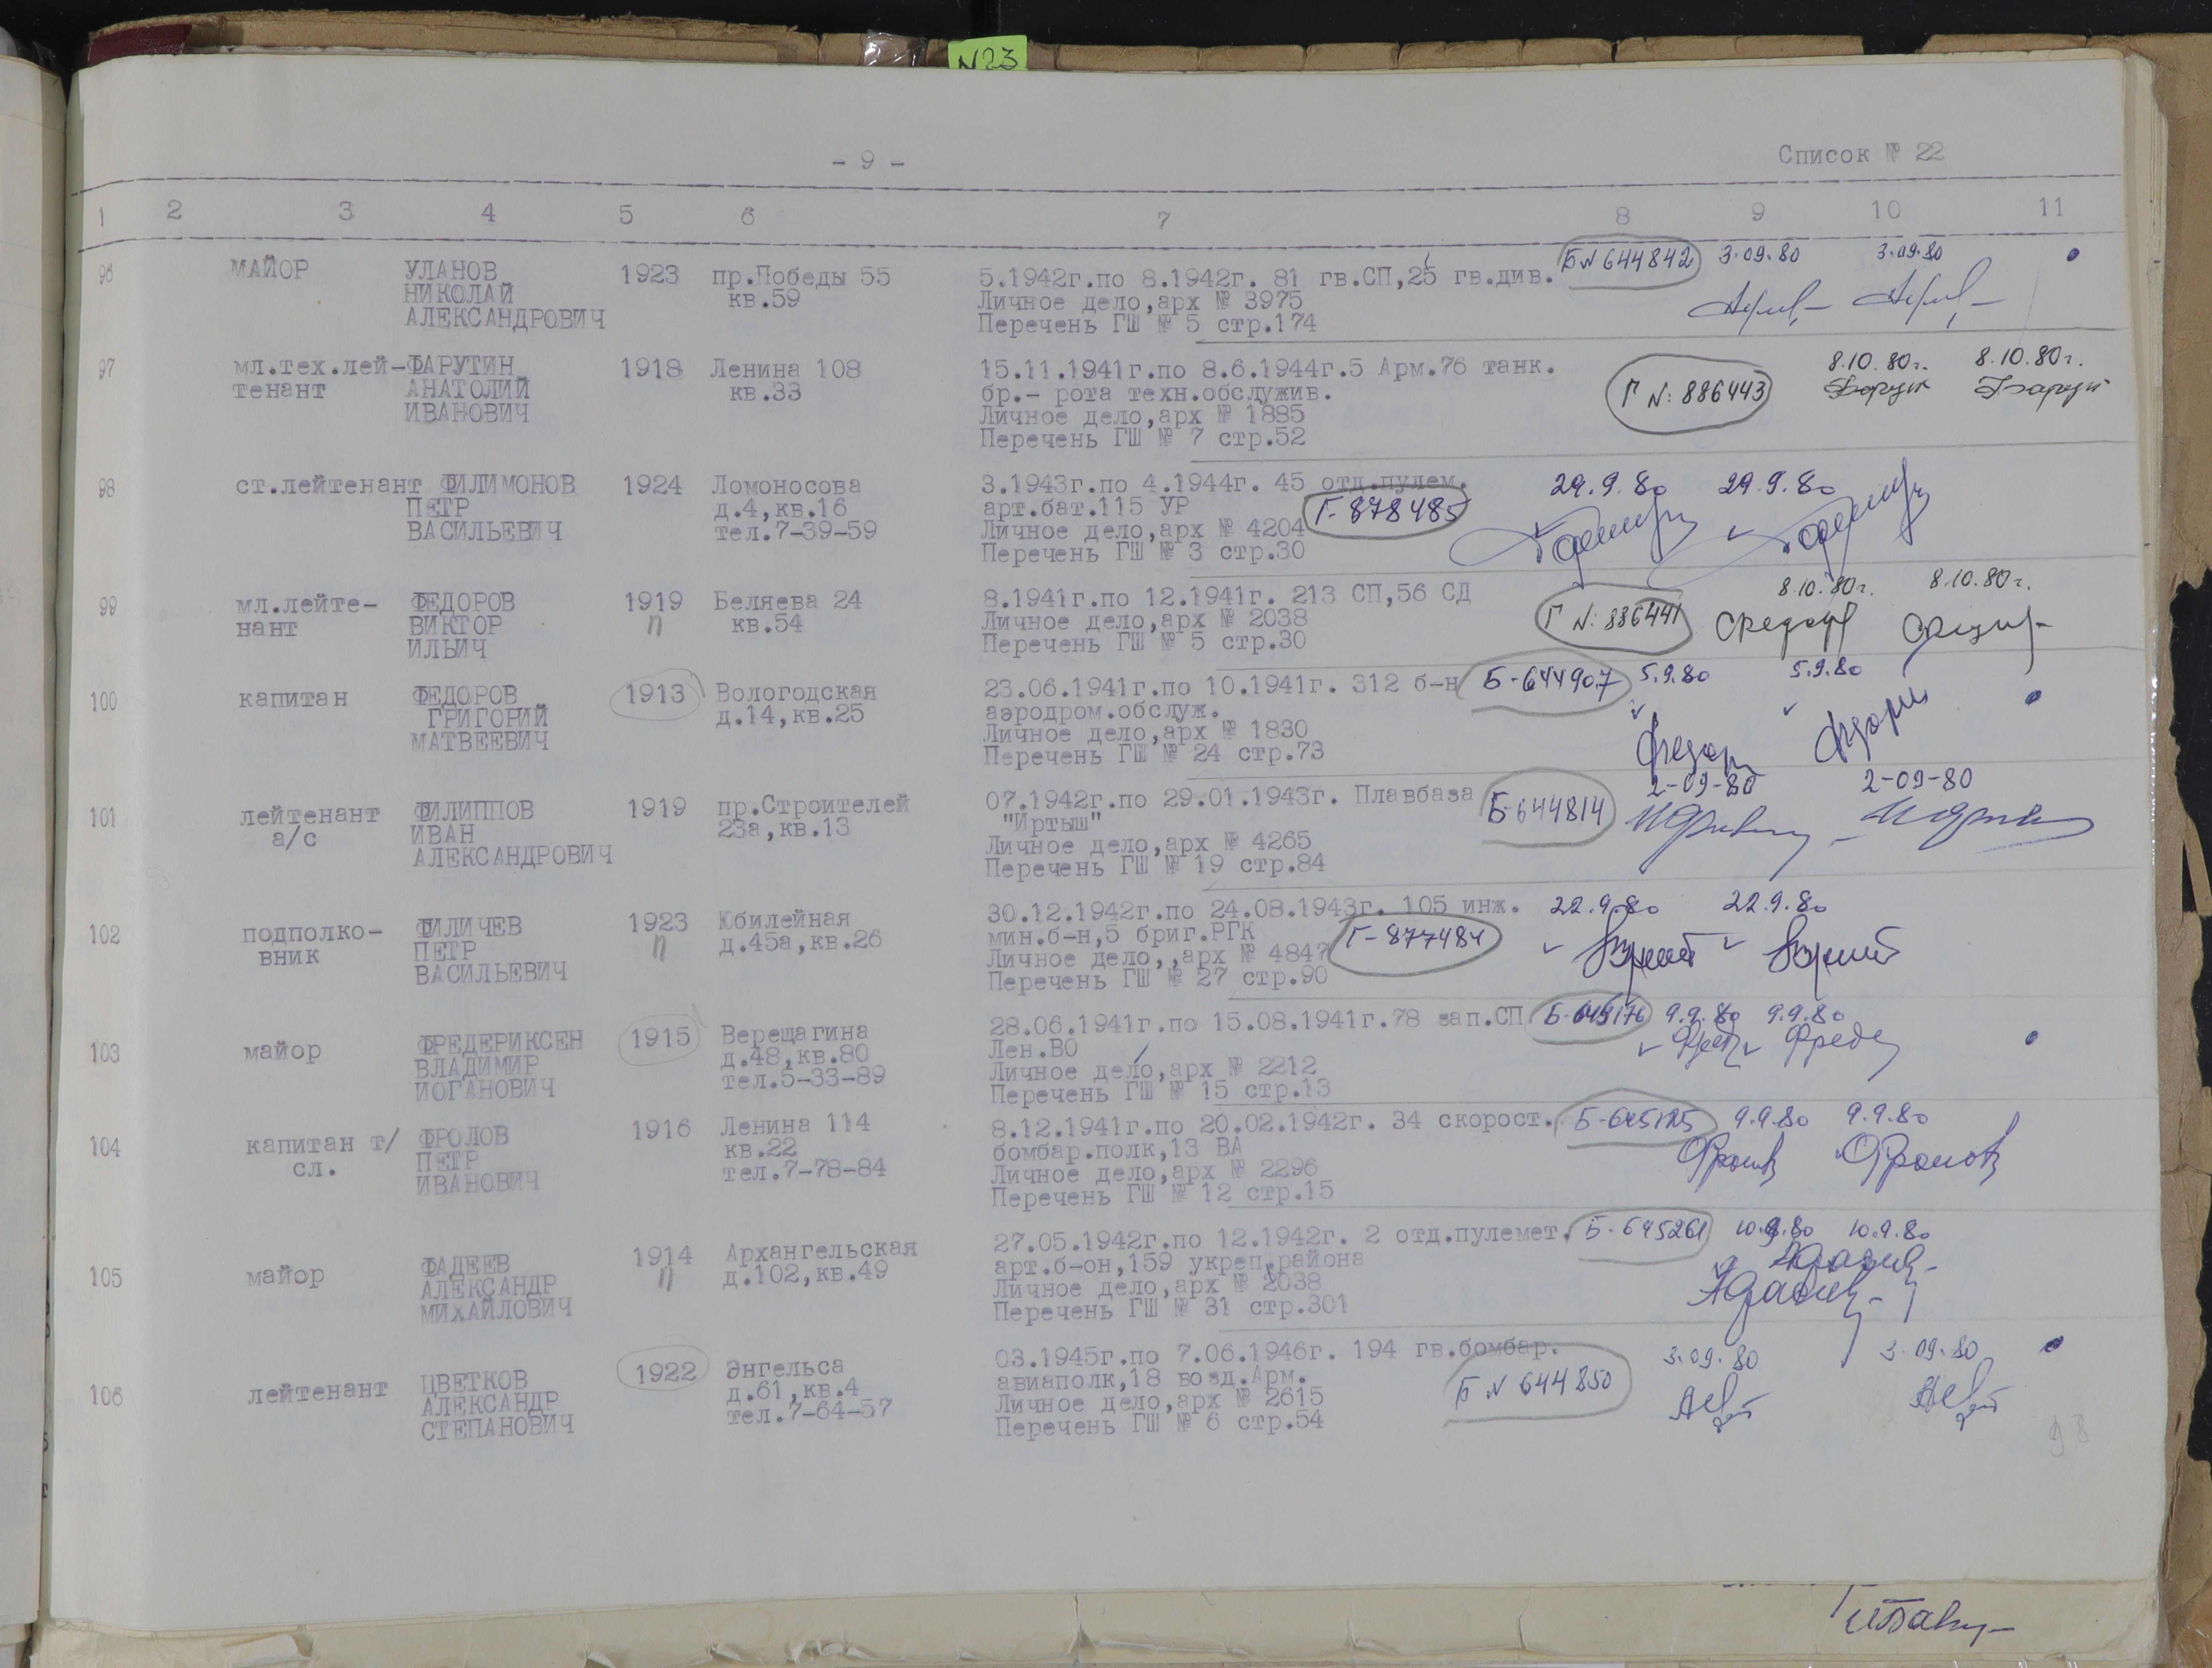 N23
- 9 -
Список № 22
1 2 3 4 5 6 7 8 9 10 11
96 МАЙОР УЛАНОВ 1923 пр.Победы 55 5.1942г.по 8.1942г. 81 гв.СП,25 гв.див. Б№644842 3.09.80 3.09.80
НИКОЛАЙ кв.59 Личное дело,арх № 3975
АЛЕКСАНДРОВИЧ Перечень ГШ № 5 стр.174
97 мл.тех.лей- ФАРУТИН 1918 Ленина 108 15.11.1941г.по 8.6.1944г.5 Арм.76 танк. Г №: 886443 8.10.80г. 8.10.80г.
тенант АНАТОЛИЙ кв.33 бр.- рота техн.обслужив.
ИВАНОВИЧ Личное дело,арх № 1885
Перечень ГШ № 7 стр.52
98 ст.лейтенант ФИЛИМОНОВ 1924 Ломоносова 3.1943г.по 4.1944г. 45 отд.пулем. 29.9.80 29.9.80
ПЕТР д.4,кв.16 арт.бат.115 УР Г-878485
ВАСИЛЬЕВИЧ тел.7-39-59 Личное дело,арх № 4204
Перечень ГШ № 3 стр.30
99 мл.лейте- ФЕДОРОВ 1919 Беляева 24 8.1941г.по 12.1941г. 213 СП,56 СД Г №: 886441 8.10.80г. 8.10.80г.
нант ВИКТОР п кв.54 Личное дело,арх № 2038
ИЛЬИЧ Перечень ГШ № 5 стр.30
100 капитан ФЕДОРОВ 1913 Вологодская 23.06.1941г.по 10.1941г. 312 б-н Б-644907 5.9.80 5.9.80
ГРИГОРИЙ д.14,кв.25 аэродром.обслуж.
МАТВЕЕВИЧ Личное дело,арх № 1830
Перечень ГШ № 24 стр.73
101 лейтенант ФИЛИППОВ 1919 пр.Строителей 07.1942г.по 29.01.1943г. Плавбаза Б-644814 2-09-80 2-09-80
а/с ИВАН 23а,кв.13 "Иртыш"
АЛЕКСАНДРОВИЧ Личное дело,арх № 4265
Перечень ГШ № 19 стр.84
102 подполко- ФИЛИЧЕВ 1923 Юбилейная 30.12.1942г.по 24.08.1943г. 105 инж. 22.9.80 22.9.80
вник ПЕТР п д.45а,кв.26 мин.б-н,5 бриг.РГК Г-877484
ВАСИЛЬЕВИЧ Личное дело,,арх № 4847
Перечень ГШ № 27 стр.90
103 майор ФРЕДЕРИКСЕН 1915 Верещагина 28.06.1941г.по 15.08.1941г.78 зап.СП 9.9.80 9.9.80
ВЛАДИМИР д.48,кв.80 Лен.ВО
ИОГАНОВИЧ тел.5-33-89 Личное дело,арх № 2212
Перечень ГШ № 15 стр.13
104 капитан т/ ФРОЛОВ 1916 Ленина 114 8.12.1941г.по 20.02.1942г. 34 скорост. 9.9.80 9.9.80
сл. ПЕТР кв.22 бомбар.полк,13 ВА
ИВАНОВИЧ тел.7-78-84 Личное дело,арх № 2296
Перечень ГШ № 12 стр.15
105 майор ФАДЕЕВ 1914 Архангельская 27.05.1942г.по 12.1942г. 2 отд.пулемет. Б-645261 10.9.80 10.9.80
АЛЕКСАНДР п д.102,кв.49 арт.б-он,159 укреп,района
МИХАЙЛОВИЧ Личное дело,арх № 2038
Перечень ГШ № 31 стр.301
106 лейтенант ЦВЕТКОВ 1922 Энгельса 03.1945г.по 7.06.1946г. 194 гв.бомбар. Б № 644850 3.09.80 3.09.80
АЛЕКСАНДР д.61,кв.4 авиаполк,18 возд.Арм.
СТЕПАНОВИЧ тел.7-64-57 Личное дело,арх № 2615
Перечень ГШ № 6 стр.54
98